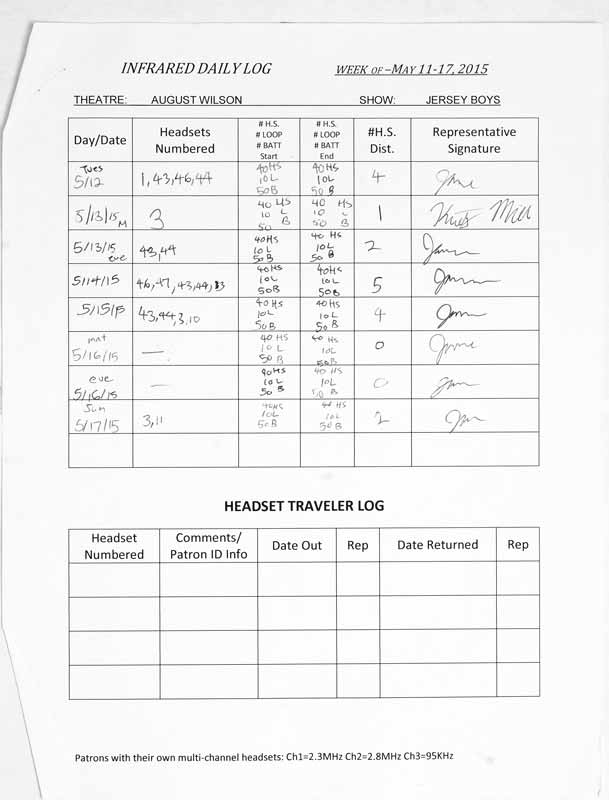 INFRARED DAILY LOG WEEK OF –MAY 11-17, 2015
THEATRE: AUGUST WILSON SHOW: JERSEY BOYS
Day/Date Headsets Numbered # H.S. # LOOP # BATT Start # H.S. # LOOP # BATT End #H.S. Dist. Representative Signature
Tues 5/12 1,43,46,44 40HS 10L 50B 40HS 10L 50B 4
5/13/15 M 3 40 HS 10 L 50 B 40 HS 10 L 50 B 1
5/13/15 eve 43,44 40HS 10L 50B 40 HS 10L 50 B 2
5/14/15 46,47,43,44, 40HS 10L 50B 40HS 10L 50B 5
5/15/15 43,44,3,10 40HS 10L 50B 40HS 10L 50B 4
mat 5/16/15 — 40HS 10L 50B 40 HS 10L 50B 0
eve 5/16/15 — 40HS 10L 50B 40 HS 10L 50 B 0
Sun 5/17/15 3,11 40HS 10L 50B 40 HS 10L 50 B 2
HEADSET TRAVELER LOG
Headset Numbered Comments/ Patron ID Info Date Out Rep Date Returned Rep
Patrons with their own multi-channel headsets: Ch1=2.3MHz Ch2=2.8MHz Ch3=95KHz